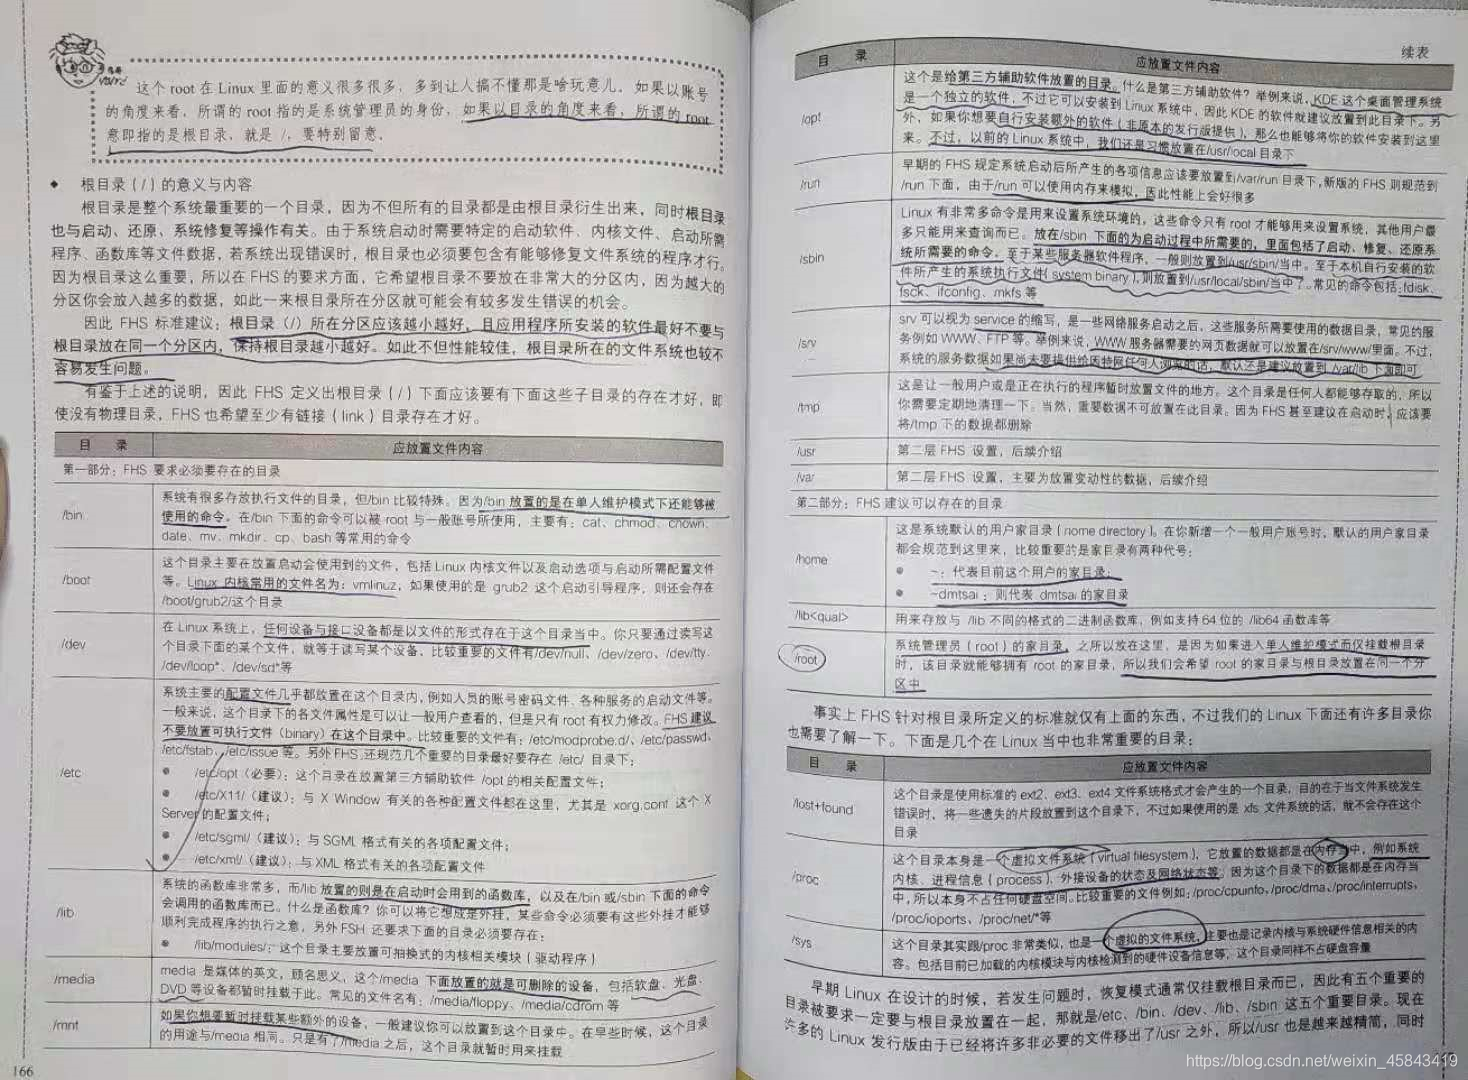 这个 root 在 Linux 里面的意义很多很多，多到让人搞不懂那是啥玩意儿。如果以账号
的角度来看，所谓的 root 指的是系统管理员的身份，如果以目录的角度来看，所谓的 root
意即指的是根目录，就是 /，要特别留意。
◆ 根目录（/）的意义与内容
根目录是整个系统最重要的一个目录，因为不但所有的目录都是由根目录衍生出来，同时根目录
也与启动、还原、系统修复等操作有关。由于系统启动时需要特定的启动软件、内核文件、启动所需
程序、函数库等文件数据，若系统出现错误时，根目录也必须要包含有能够修复文件系统的程序才行。
因为根目录这么重要，所以在 FHS 的要求方面，它希望根目录不要放在非常大的分区内，因为越大的
分区你会放入越多的数据，如此一来根目录所在分区就可能会有较多发生错误的机会。
因此 FHS 标准建议：根目录（/）所在分区应该越小越好，且应用程序所安装的软件最好不要与
根目录放在同一个分区内，保持根目录越小越好。如此不但性能较佳，根目录所在的文件系统也较不
容易发生问题。
有鉴于上述的说明，因此 FHS 定义出根目录（/）下面应该要有下面这些子目录的存在才好，即
使没有物理目录，FHS 也希望至少有链接（link）目录存在才好。
目 录 应放置文件内容
第一部分：FHS 要求必须要存在的目录
/bin
系统有很多存放执行文件的目录，但/bin 比较特殊。因为/bin 放置的是在单人维护模式下还能够被
使用的命令。在/bin 下面的命令可以被 root 与一般账号所使用，主要有：cat、chmod、chown、
date、mv、mkdir、cp、bash 等常用的命令
/boot
这个目录主要在放置启动会使用到的文件，包括 Linux 内核文件以及启动选项与启动所需配置文件
等。Linux 内核常用的文件名为：vmlinuz，如果使用的是 grub2 这个启动引导程序，则还会存在
/boot/grub2/这个目录
/dev
在 Linux 系统上，任何设备与接口设备都是以文件的形式存在于这个目录当中。你只要通过读写这
个目录下面的某个文件，就等于读写某个设备。比较重要的文件有/dev/null、/dev/zero、/dev/tty、
/dev/loop*、/dev/sd*等
/etc
系统主要的配置文件几乎都放置在这个目录内，例如人员的账号密码文件、各种服务的启动文件等。
一般来说，这个目录下的各文件属性是可以让一般用户查看的，但是只有 root 有权力修改。FHS 建议
不要放置可执行文件（binary）在这个目录中。比较重要的文件有：/etc/modprobe.d/、/etc/passwd、
/etc/fstab、/etc/issue 等。另外 FHS 还规范几个重要的目录最好要存在 /etc/ 目录下：
● /etc/opt（必要）：这个目录在放置第三方辅助软件 /opt 的相关配置文件；
● /etc/X11/（建议）：与 X Window 有关的各种配置文件都在这里，尤其是 xorg.conf 这个 X
Server 的配置文件；
● /etc/sgml/（建议）：与 SGML 格式有关的各项配置文件；
● /etc/xml/（建议）：与 XML 格式有关的各项配置文件
/lib
系统的函数库非常多，而/lib 放置的则是在启动时会用到的函数库，以及在/bin 或/sbin 下面的命令
会调用的函数库而已。什么是函数库？你可以将它想成是外挂，某些命令必须要有这些外挂才能够
顺利完成程序的执行之意，另外 FSH 还要求下面的目录必须要存在：
● /lib/modules/：这个目录主要放置可抽换式的内核相关模块（驱动程序）
/media
media 是媒体的英文，顾名思义，这个/media 下面放置的就是可删除的设备，包括软盘、光盘、
DVD 等设备都暂时挂载于此。常见的文件名有：/media/floppy、/media/cdrom 等
/mnt
如果你想要暂时挂载某些额外的设备，一般建议你可以放置到这个目录中。在早些时候，这个目录
的用途与/media 相同。只是有了/media 之后，这个目录就暂时用来挂载
166
续表
目 录 应放置文件内容
/opt
这个是给第三方辅助软件放置的目录。什么是第三方辅助软件？举例来说，KDE 这个桌面管理系统
是一个独立的软件，不过它可以安装到 Linux 系统中，因此 KDE 的软件就建议放置到此目录下。另
外，如果你想要自行安装额外的软件（非原本的发行版提供），那么也能够将你的软件安装到这里
来。不过，以前的 Linux 系统中，我们还是习惯放置在/usr/local 目录下
/run
早期的 FHS 规定系统启动后所产生的各项信息应该要放置到/var/run 目录下，新版的 FHS 则规范到
/run 下面，由于/run 可以使用内存来模拟，因此性能上会好很多
/sbin
Linux 有非常多命令是用来设置系统环境的，这些命令只有 root 才能够用来设置系统，其他用户最
多只能用来查询而已。放在/sbin 下面的为启动过程中所需要的，里面包括了启动、修复、还原系
统所需要的命令。至于某些服务器软件程序，一般则放置到/usr/sbin/当中。至于本机自行安装的软
件所产生的系统执行文件（system binary），则放置到/usr/local/sbin/当中了。常见的命令包括：fdisk、
fsck、ifconfig、mkfs 等
/srv
srv 可以视为 service 的缩写，是一些网络服务启动之后，这些服务所需要使用的数据目录，常见的服
务例如 WWW、FTP 等。举例来说，WWW 服务器需要的网页数据就可以放置在/srv/www/里面。不过，
系统的服务数据如果尚未要提供给因特网任何人浏览的话，默认还是建议放置到 /var/lib 下面即可
/tmp
这是让一般用户或是正在执行的程序暂时放置文件的地方。这个目录是任何人都能够存取的，所以
你需要定期地清理一下。当然，重要数据不可放置在此目录。因为 FHS 甚至建议在启动时，应该要
将/tmp 下的数据都删除
/usr 第二层 FHS 设置，后续介绍
/var 第二层 FHS 设置，主要为放置变动性的数据，后续介绍
第二部分：FHS 建议可以存在的目录
/home
这是系统默认的用户家目录（home directory）。在你新增一个一般用户账号时，默认的用户家目录
都会规范到这里来，比较重要的是家目录有两种代号：
● ~：代表目前这个用户的家目录；
● ~dmtsai：则代表 dmtsai 的家目录
/lib<qual> 用来存放与 /lib 不同的格式的二进制函数库，例如支持 64 位的 /lib64 函数库等
/root
系统管理员（root）的家目录。之所以放在这里，是因为如果进入单人维护模式而仅挂载根目录
时，该目录就能够拥有 root 的家目录，所以我们会希望 root 的家目录与根目录放置在同一个分
区中
事实上 FHS 针对根目录所定义的标准就仅有上面的东西，不过我们的 Linux 下面还有许多目录你
也需要了解一下。下面是几个在 Linux 当中也非常重要的目录：
目 录 应放置文件内容
/lost+found
这个目录是使用标准的 ext2、ext3、ext4 文件系统格式才会产生的一个目录，目的在于当文件系统发生
错误时，将一些遗失的片段放置到这个目录下，不过如果使用的是 xfs 文件系统的话，就不会存在这个
目录
/proc
这个目录本身是一个虚拟文件系统（virtual filesystem），它放置的数据都是在内存当中，例如系统
内核、进程信息（process）、外接设备的状态及网络状态等。因为这个目录下的数据都是在内存当
中，所以本身不占任何硬盘空间。比较重要的文件例如：/proc/cpuinfo、/proc/dma、/proc/interrupts、
/proc/ioports、/proc/net/*等
/sys
这个目录其实跟/proc 非常类似，也是一个虚拟的文件系统，主要也是记录内核与系统硬件信息相关的内
容。包括目前已加载的内核模块与内核检测到的硬件设备信息等，这个目录同样不占硬盘容量
早期 Linux 在设计的时候，若发生问题时，恢复模式通常仅挂载根目录而已，因此有五个重要的
目录被要求一定要与根目录放置在一起，那就是/etc、/bin、/dev、/lib、/sbin 这五个重要目录。现在
许多的 Linux 发行版由于已经将许多非必要的文件移出了/usr 之外，所以/usr 也是越来越精简，同时
https://blog.csdn.net/weixin_45843419